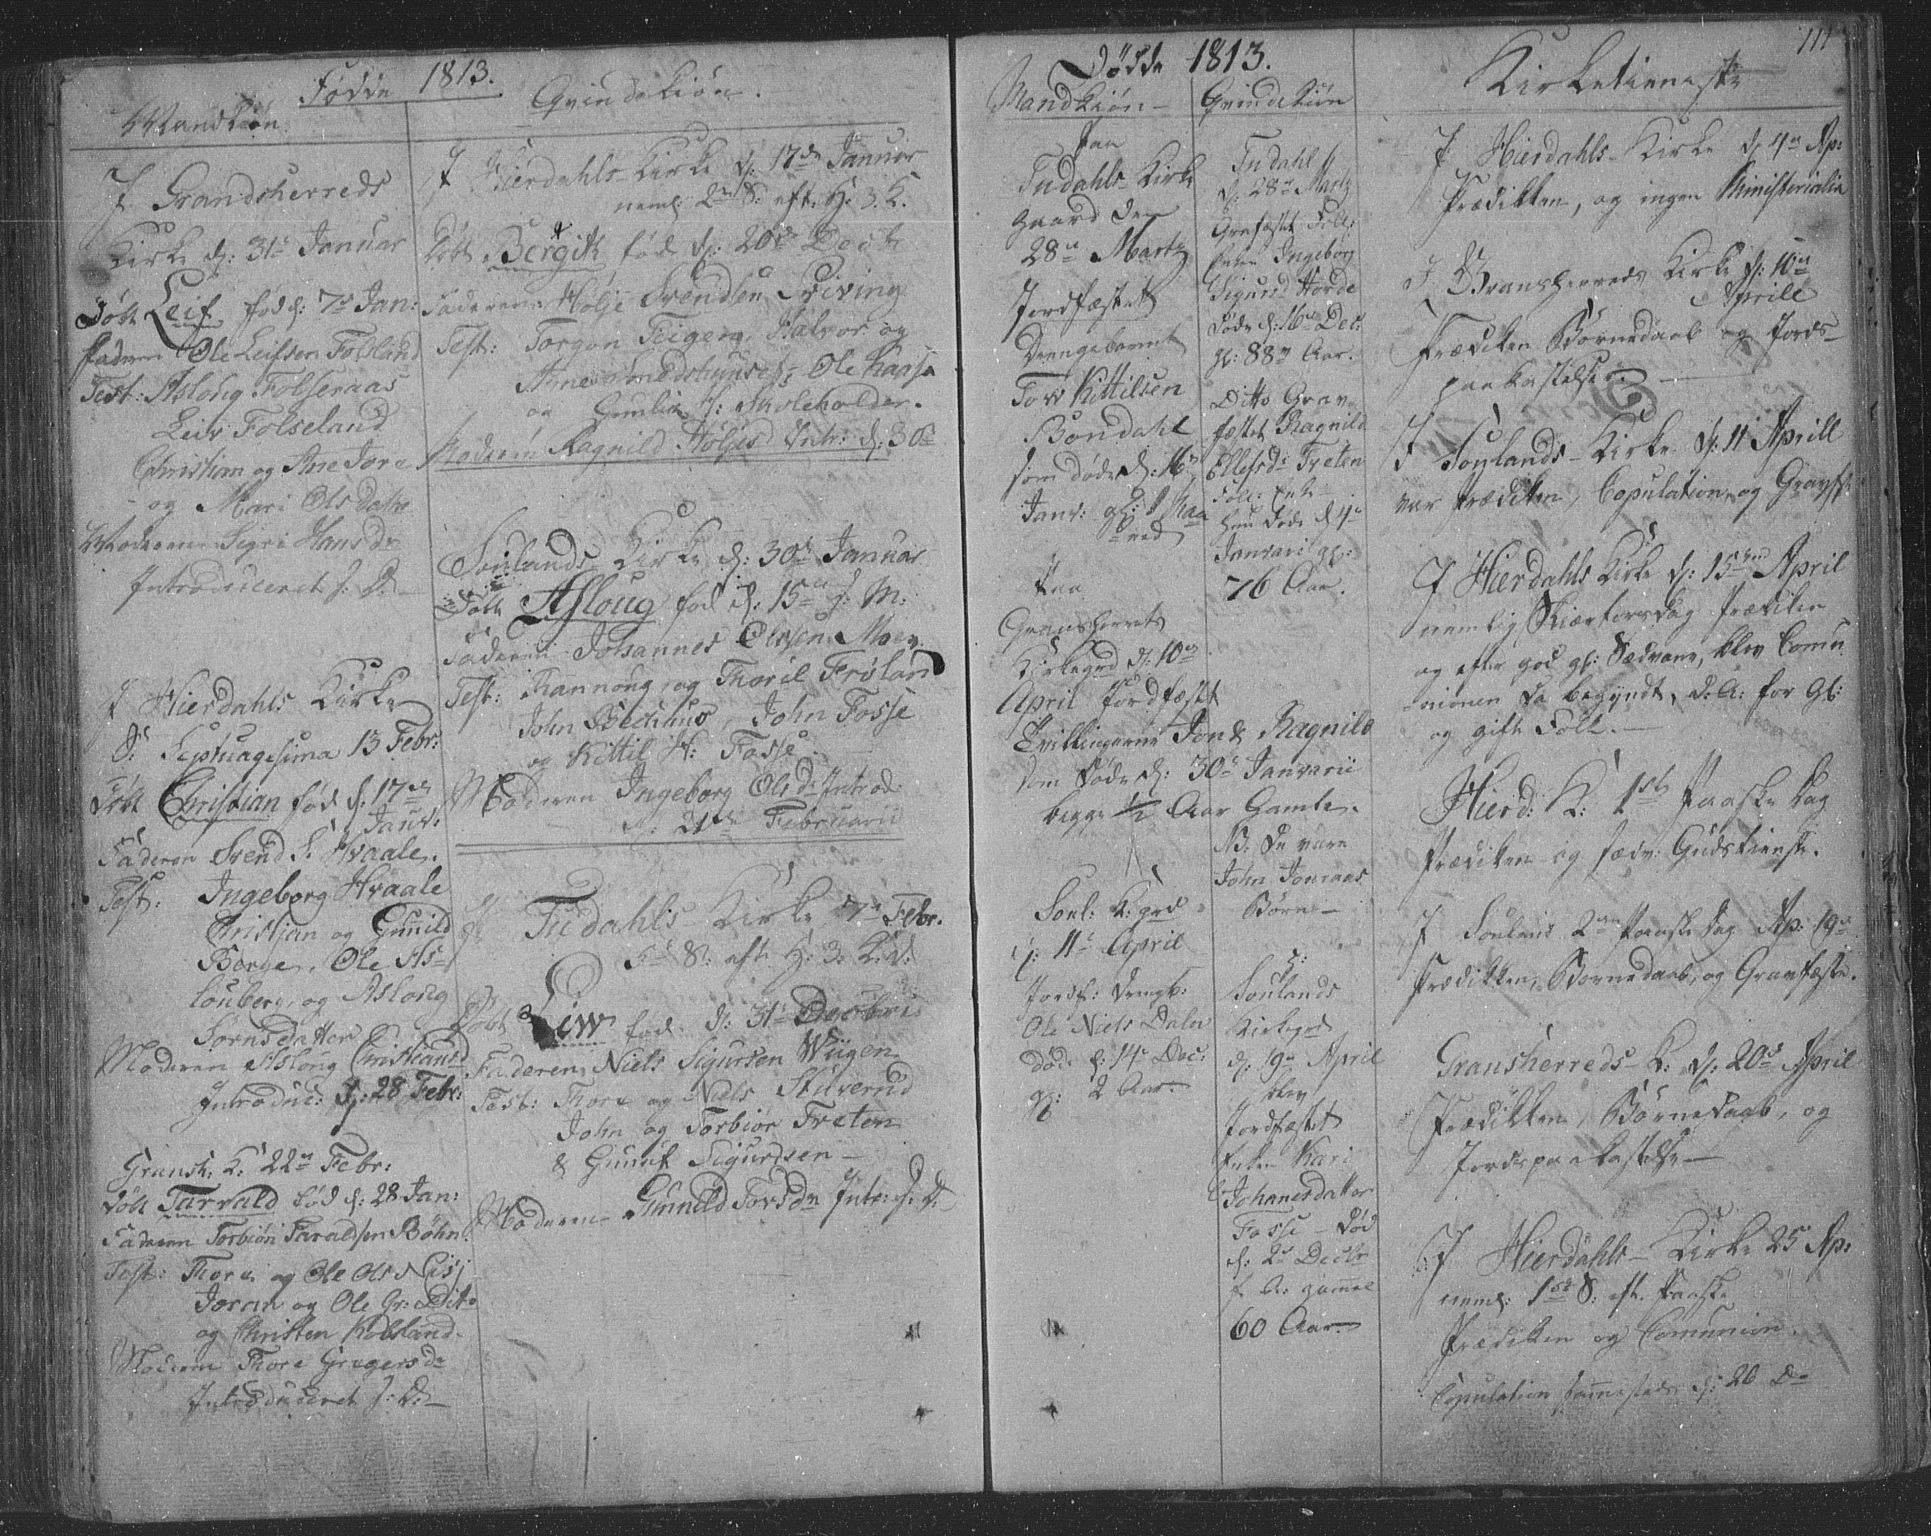 Fødde 1813.
Mandkiøn.
I Grandsherreds
Kirke d: 31te Januar
Døbt Leif fød d: 7de Jan:
Faderen Ole Leifsen Folsland
Test: Aslaug Folseraas
Leiv Folseland
Christian og Ane Jore
og Mari Olsdatter
Moderen Sigri Hansdr
Introduceret s: D:
I Hierdahls Kirke
S: Septuagesima 13 Febr:
Døbt Christian fød d: 17de
Janv:
Faderen Svend S. Hvaale.
Test: Ingeborg Hvaale
Christian og Gunild
Borge, Ole As-
louberg, og Aslong
Sørnsdatter
Moderen Aslong Christiansd
Introduc: d: 28 Febr:
Gransh. K: 22de Febr:
døbt Tarvald fød d: 28 Jan:
Faderen Torbiøn Taraldsen Bøhn
Test: Thore og Ole Ols Nisj
Joran og Ole Gr: Dito
og Christen Kolsland
Moderen Thore Gregersdr
Introduceret s: D:
Qvindekiøn.
I Hierdahls Kirke d: 17de Januar
neml: 2den S: eft. H: 3. K.
Døbt Bergit fød d: 20de Decbr
Faderen Hølje Svendsen Qviving
Test: Torgon Teigen, Halvor og
Anne Smedshuus og Ole Haasa
og Gunlik S: Skoleholder.
Moderen Ragnild Høljesd Intr: d: 30te
Soulands Kirke d: 30te Januar
Døbt Asloug fød d: 15de s: M:
Faderen Johannes Olssen Moen
Test: Rannoug og Thoril Frøland
John Bechhus, John Fosse
og Kittil H: Fosse
Moderen Ingeborg Olsdr Introd
d: 21de Februarii
I Tudahls Kirke 7de Febr.
5te S: eft H: 3. K. D:
Døbt Liw fød d: 31te Decbris
Faderen Niels Sigursen Wiigen
Test: Thore og Niels Skiverud
John og Torbiør Treten
& Gunuf Sigurdsen
Moderen Gunnild Torsdr Intr: s: D:
Dødde 1813.
Mandkiøn
Paa
Tudahls Kirke
gaard den
28de Martz
Jordfæstet
Drengebarnet
Tov Kittilsen
Bondahl
som døde d: 16de
Janv: gl: 1 Maa
ned
Paa
Gransherrets
Kirkegrd d: 10de
April Jordfæstet
Tvillingerne Jon & Ragnild
som døde d: 30te Janvarii
begge 1/2 Aar Gamle.
Soul: K: grd
d: 11te April
Jordf: Drengb:
Ole Niels Dalen
død d: 14de Dec:
gl: 2 Aar.
Qvindekiøn
Tudahl
d: 28de Martz
Gravfæstet Fatt:
Enken Ingeborg
Sigurd Horde
Døde d: 16de Dec:
gl: 88 Aar.
Ditto Grav
fæstet Ragnild
Ellefsdr Treten
Enke
hun døde d 4de
Janvari gl:
76 Aar.
N: De vare
John Jonsaas
Børn
Soulands
Kirkegrd
d: 19de April
blev
Jordfæstet
Enken Kari
Johanesdatter
Fosse Død
d: 2de Decbr
f. A: gammel
60 Aar
111
Kirketieneste
I Hierdahls Kirke d 4de Ap:
Prædikken, og ingen Ministerialia
I Gransherreds Kirke d: 10de
Aprill
Prædiken Børnedaab og Jords-
paakastelse.
I Soulands Kirke d: 11 Aprill
var prædiken, Copulation og Gravf:
I Hierdahls Kirke d: 15de April
nemlig Skiærtorsdag Prædiken
og efter god gl: Sædvane, blev Comu
nionen da begyndt, d: A: for gl:
og gift Folk.
Hierd: K: 1ste Paaske dag
Prædiken og sædv: Gudstieneste.
I Souland 2den Paaske dag Ap: 19de
Prædikken, Børnedaab, og Gravfæste.
Gransherreds K: d: 20de April
Prædikken, Børnedaab, og
Jordspaakastelse
I Hierdahls Kirke 25 Ap:
neml: 1ste S: eft. Paaske
Prædiken og Comunion.
Copulation sammesteds d: 26 Do